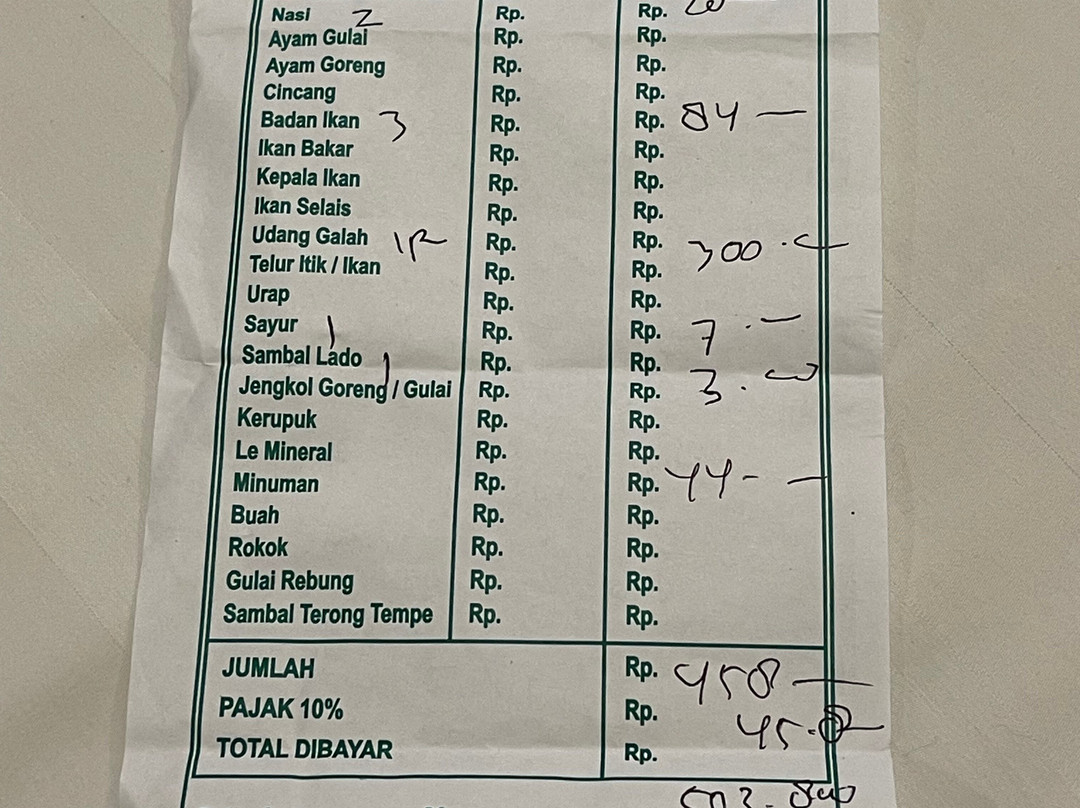 Nasi 2 Rp. Rp. 20
Ayam Gulai Rp. Rp.
Ayam Goreng Rp. Rp.
Cincang Rp. Rp.
Badan Ikan 3 Rp. Rp. 84 —
Ikan Bakar Rp. Rp.
Kepala Ikan Rp. Rp.
Ikan Selais Rp. Rp.
Udang Galah Rp. Rp. 300.
Telur Itik / Ikan Rp. Rp.
Urap Rp. Rp.
Sayur 1 Rp. Rp. 7.—
Sambal Lado 1 Rp. Rp. 3.
Jengkol Goreng / Gulai Rp. Rp.
Kerupuk Rp. Rp.
Le Mineral Rp. Rp.
Minuman Rp. Rp. 44 - —
Buah Rp. Rp.
Rokok Rp. Rp.
Gulai Rebung Rp. Rp.
Sambal Terong Tempe Rp. Rp.
JUMLAH Rp. 458 —
PAJAK 10% Rp. 45.8
TOTAL DIBAYAR Rp.
503.800